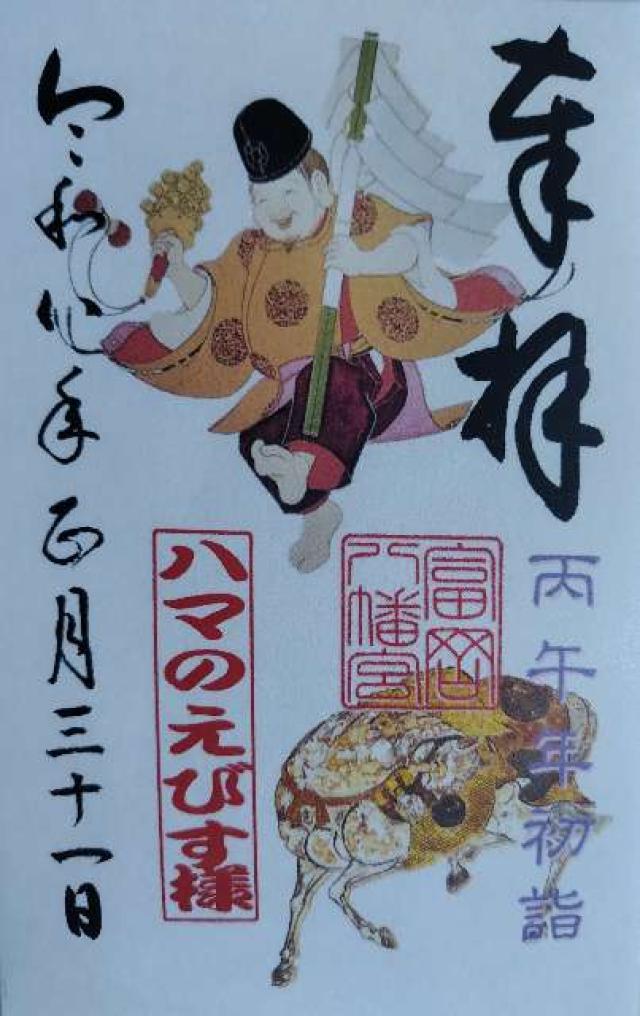 奉拝
丙午年初詣
富岡八幡宮
ハマのえびす様
令和八年正月三十一日